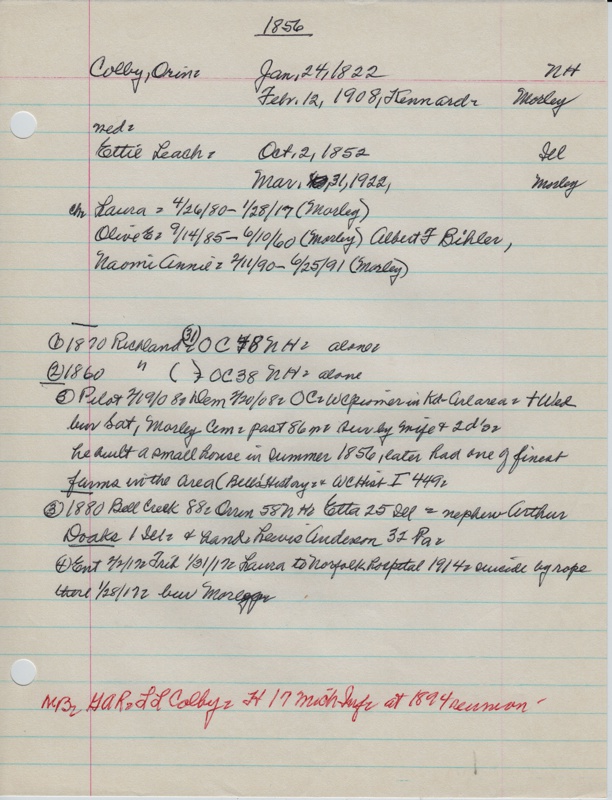 1856
Colby, Orin= Jan. 24, 1822 NH
Febr. 12, 1908, Kennard= Morley
med=
Ettie Leach= Oct. 2, 1852 Ill
Mar. 31, 1922, Morley
ch Laura = 4/26/80 - 1/28/17 (Morley)
Olive E= 9/14/85 - 6/10/60 (Morley) Albert F Bihler,
Naomi Annie= 2/11/90 - 6/25/91 (Morley)
(1) 1870 Richland (31) = OC 48 NH= alone=
(2) 1860 " ( ) = OC 38 NH= alone
(5) Pilot 2/19/08= Dem 2/20/08= OC= WC pioneer in Kd- area= + Wed
bur Sat, Morley Cem= past 86 = sur by wife + 2 d's=
he built a small house in summer 1856, later had one of finest
farms in the area (Bell's History= + WC Hist I 449=
(3) 1880 Bell Creek 88= Orrin 58 NH= Etta 25 Ill = nephew Arthur
Doaks 1 Ill= + hand Lewis Anderson 32 Pa=
(4) Ent 2/2/17= Trib 1/31/17= Laura to Norfolk hospital 1914= suicide by rope
there 1/28/17= bur Morley=
NB= GAR= L L Colby= H 17 Mich Inf= at 1894 reunion-